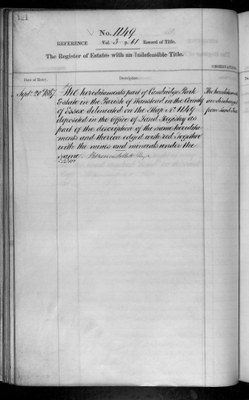 No. 1149
REFERENCE Vol. 3 p. 61 Record of Title.
The Register of Estates with an Indefeasible Title.
Date of Entry. Description. OBSERVATIONS
Sept. 20th 1867 The hereditaments part of Cambridge Park The hereditaments
Estate in the Parish of Wanstead in the County are discharged
of Essex delineated in the Map No. 1149 from
deposited in the Office of Land Registry as
part of the description of the same heredita-
ments and therein edged with red Together
with the mines and minerals under the
same